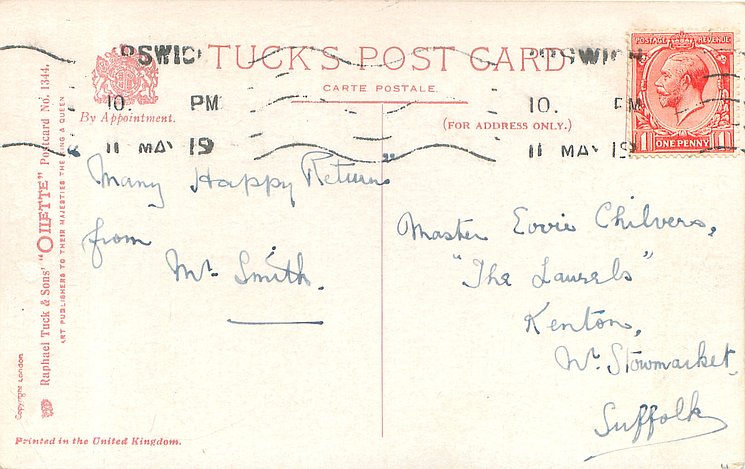 TUCK'S POST CARD
CARTE POSTALE.
By Appointment.
(FOR ADDRESS ONLY.)
IPSWICH
10. PM
11 MAY 19
IPSWICH
10. PM
11 MAY 19
POSTAGE REVENUE
1 ONE PENNY 1
"Many Happy Returns"
from
Mr. Smith.
Master Eovie Chilvers,
"The Laurels"
Kenton,
Nr. Stowmarket.
Suffolk
Raphael Tuck & Sons' "OILETTE" Postcard No. 1344.
ART PUBLISHERS TO THEIR MAJESTIES THE KING & QUEEN
Copyright London
Printed in the United Kingdom.